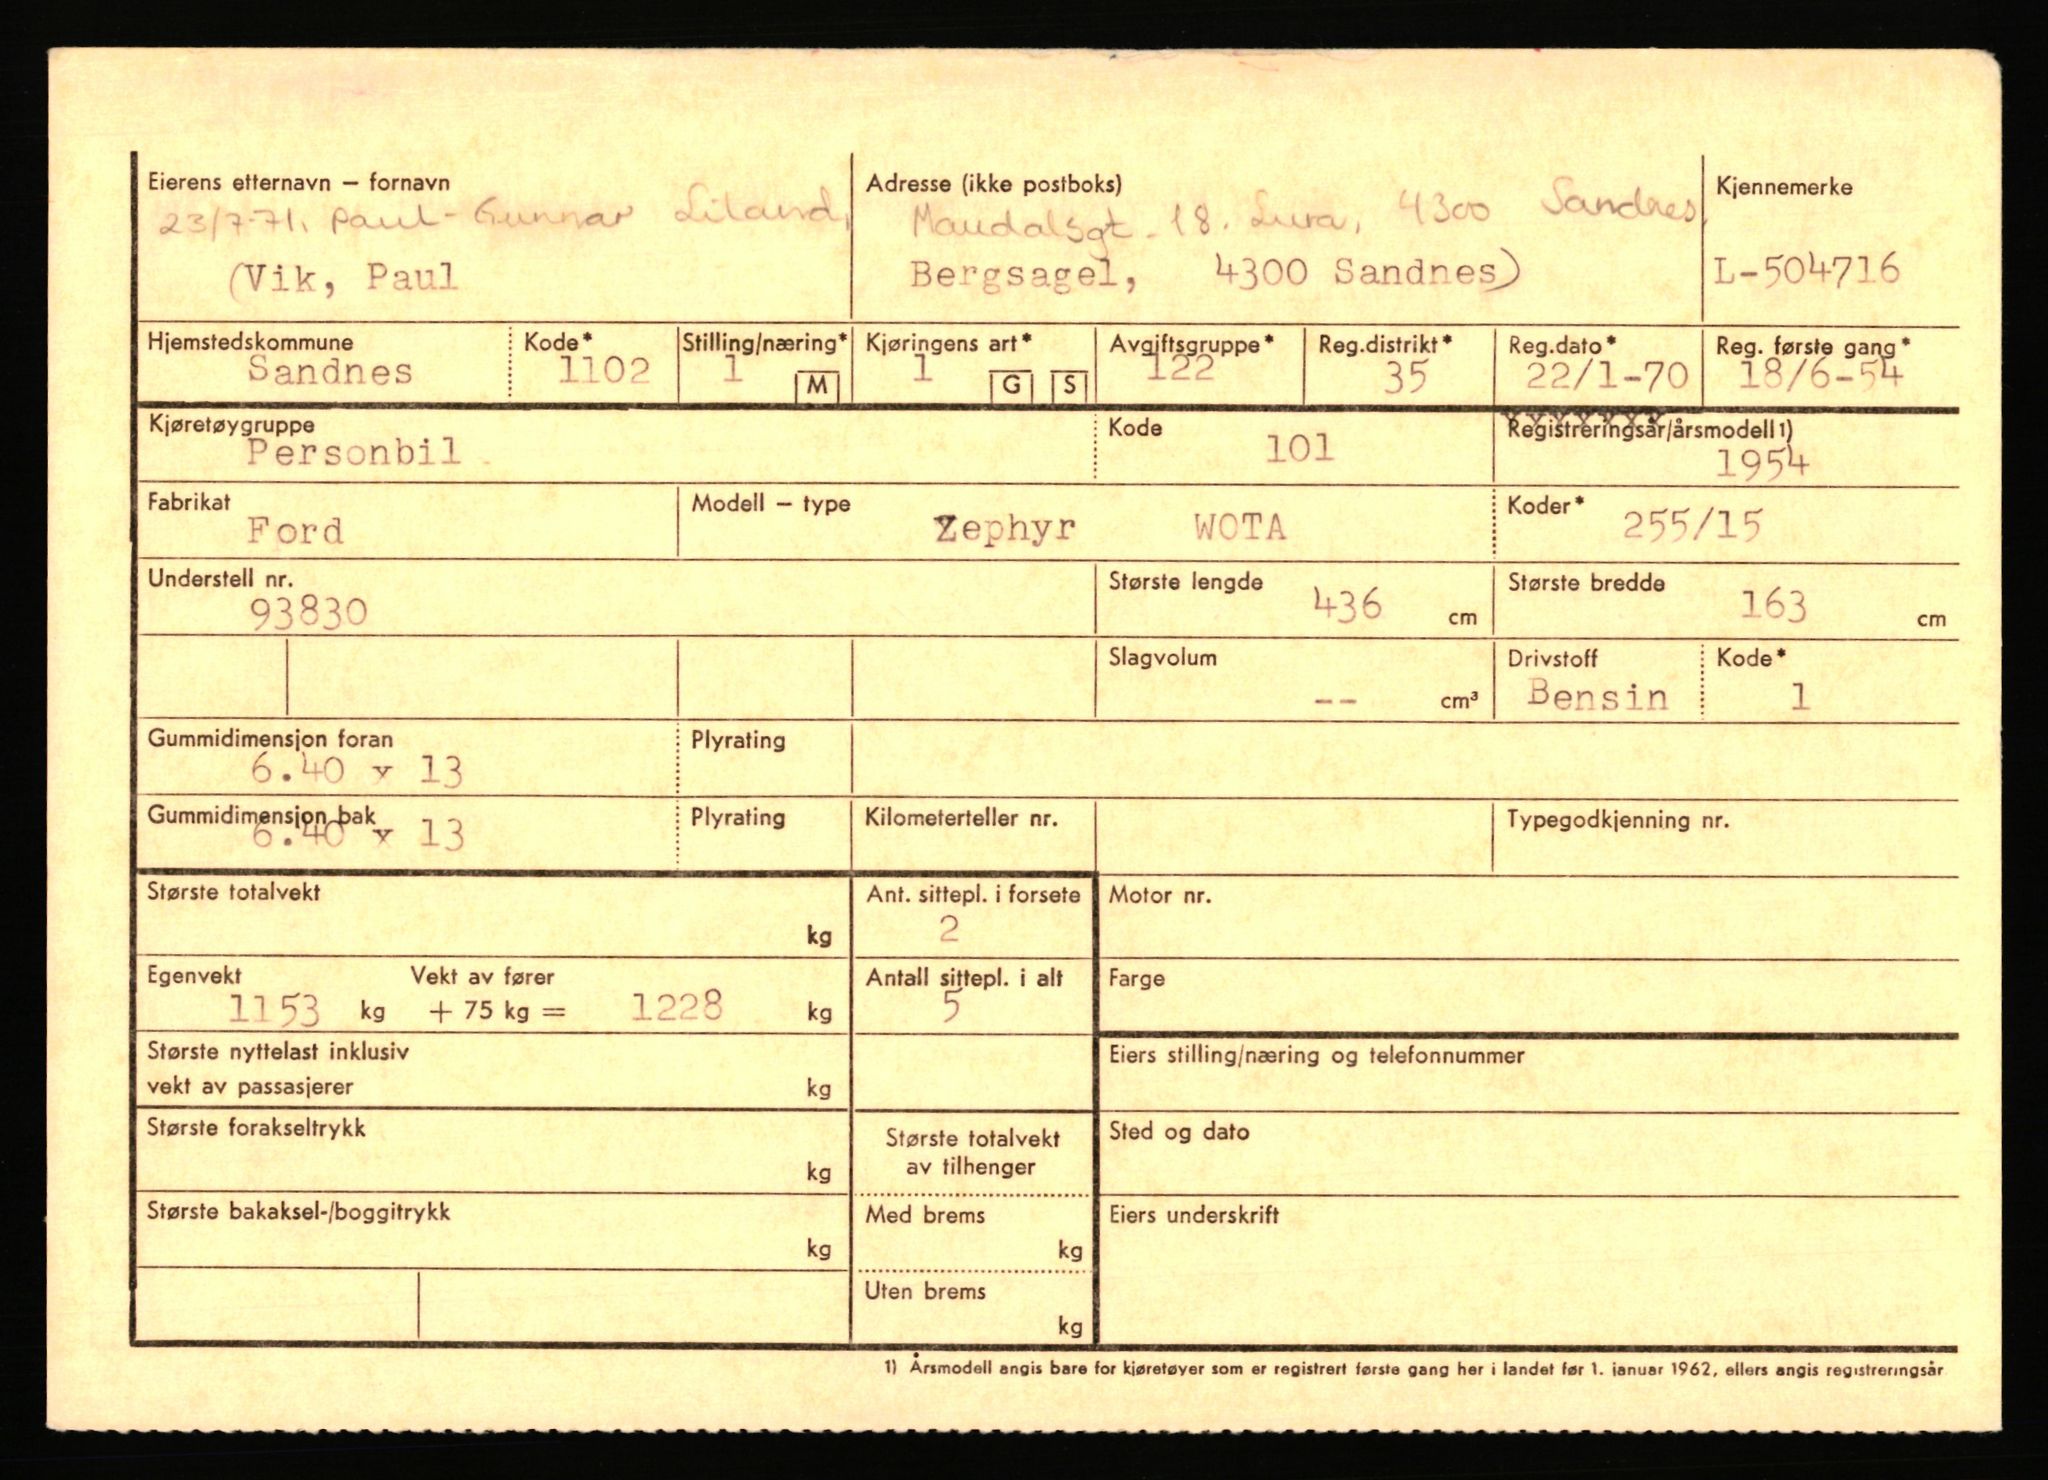 Eierens etternavn – fornavn
23/7-71. Paul-Gunnar Liland,
(Vik, Paul
Adresse (ikke postboks)
Maudalsgt. 18. Lura, 4300 Sandnes,
Bergsagel, 4300 Sandnes)
Kjennemerke
L-504716
Hjemstedskommune
Sandnes
Kode*
1102
Stilling/næring*
1 M
Kjøringens art*
1 G S
Avgiftsgruppe*
122
Reg.distrikt*
35
Reg.dato*
22/1-70
Reg. første gang*
18/6-54
Kjøretøygruppe
Personbil
Kode
101
Registreringsår/årsmodell 1)
1954
Fabrikat
Ford
Modell – type
Zephyr WOTA
Koder*
255/15
Understell nr.
93830
Største lengde
436 cm
Største bredde
163 cm
Slagvolum
-- cm³
Drivstoff
Bensin
Kode*
1
Gummidimensjon foran
6.40 x 13
Plyrating
Gummidimensjon bak
6.40 x 13
Plyrating
Kilometerteller nr.
Typegodkjenning nr.
Største totalvekt
kg
Ant. sittepl. i forsete
2
Motor nr.
Egenvekt Vekt av fører
1153 kg + 75 kg = 1228 kg
Antall sittepl. i alt
5
Farge
Største nyttelast inklusiv
vekt av passasjerer kg
Eiers stilling/næring og telefonnummer
Største forakseltrykk
kg
Største totalvekt
av tilhenger
Sted og dato
Største bakaksel-/boggitrykk
kg
Med brems
kg
Eiers underskrift
Uten brems
kg
1) Årsmodell angis bare for kjøretøyer som er registrert første gang her i landet før 1. januar 1962, ellers angis registreringsår